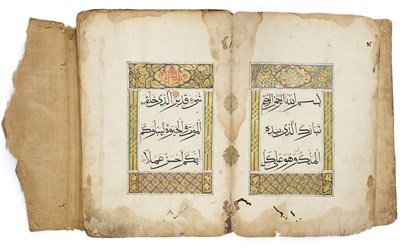 بسم الله الرحمن الرحيم
تبارك الذي بيده
الملك وهو على كل
شيء قدير الذي خلق
الموت والحيوة ليبلوكم
ايكم احسن عملا